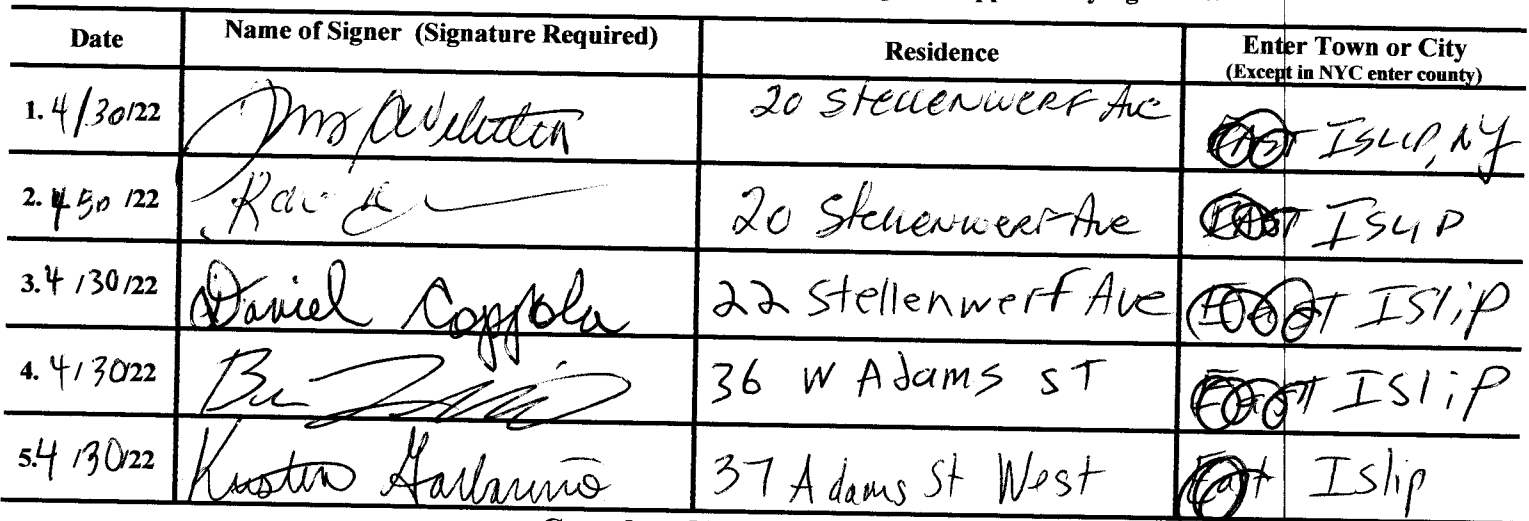 Date Name of Signer (Signature Required) Residence Enter Town or City
(Except in NYC enter county)
1. 4/30/22 20 Stellenwerf Ave East Islip, NY
2. 4 30 /22 20 Stellenwerf Ave East Islip
3. 4 /30/22 Daniel Coppola 22 Stellenwerf Ave East Islip
4. 4/30/22 36 W Adams ST East Islip
5. 4 /30/22 37 Adams St West East Islip